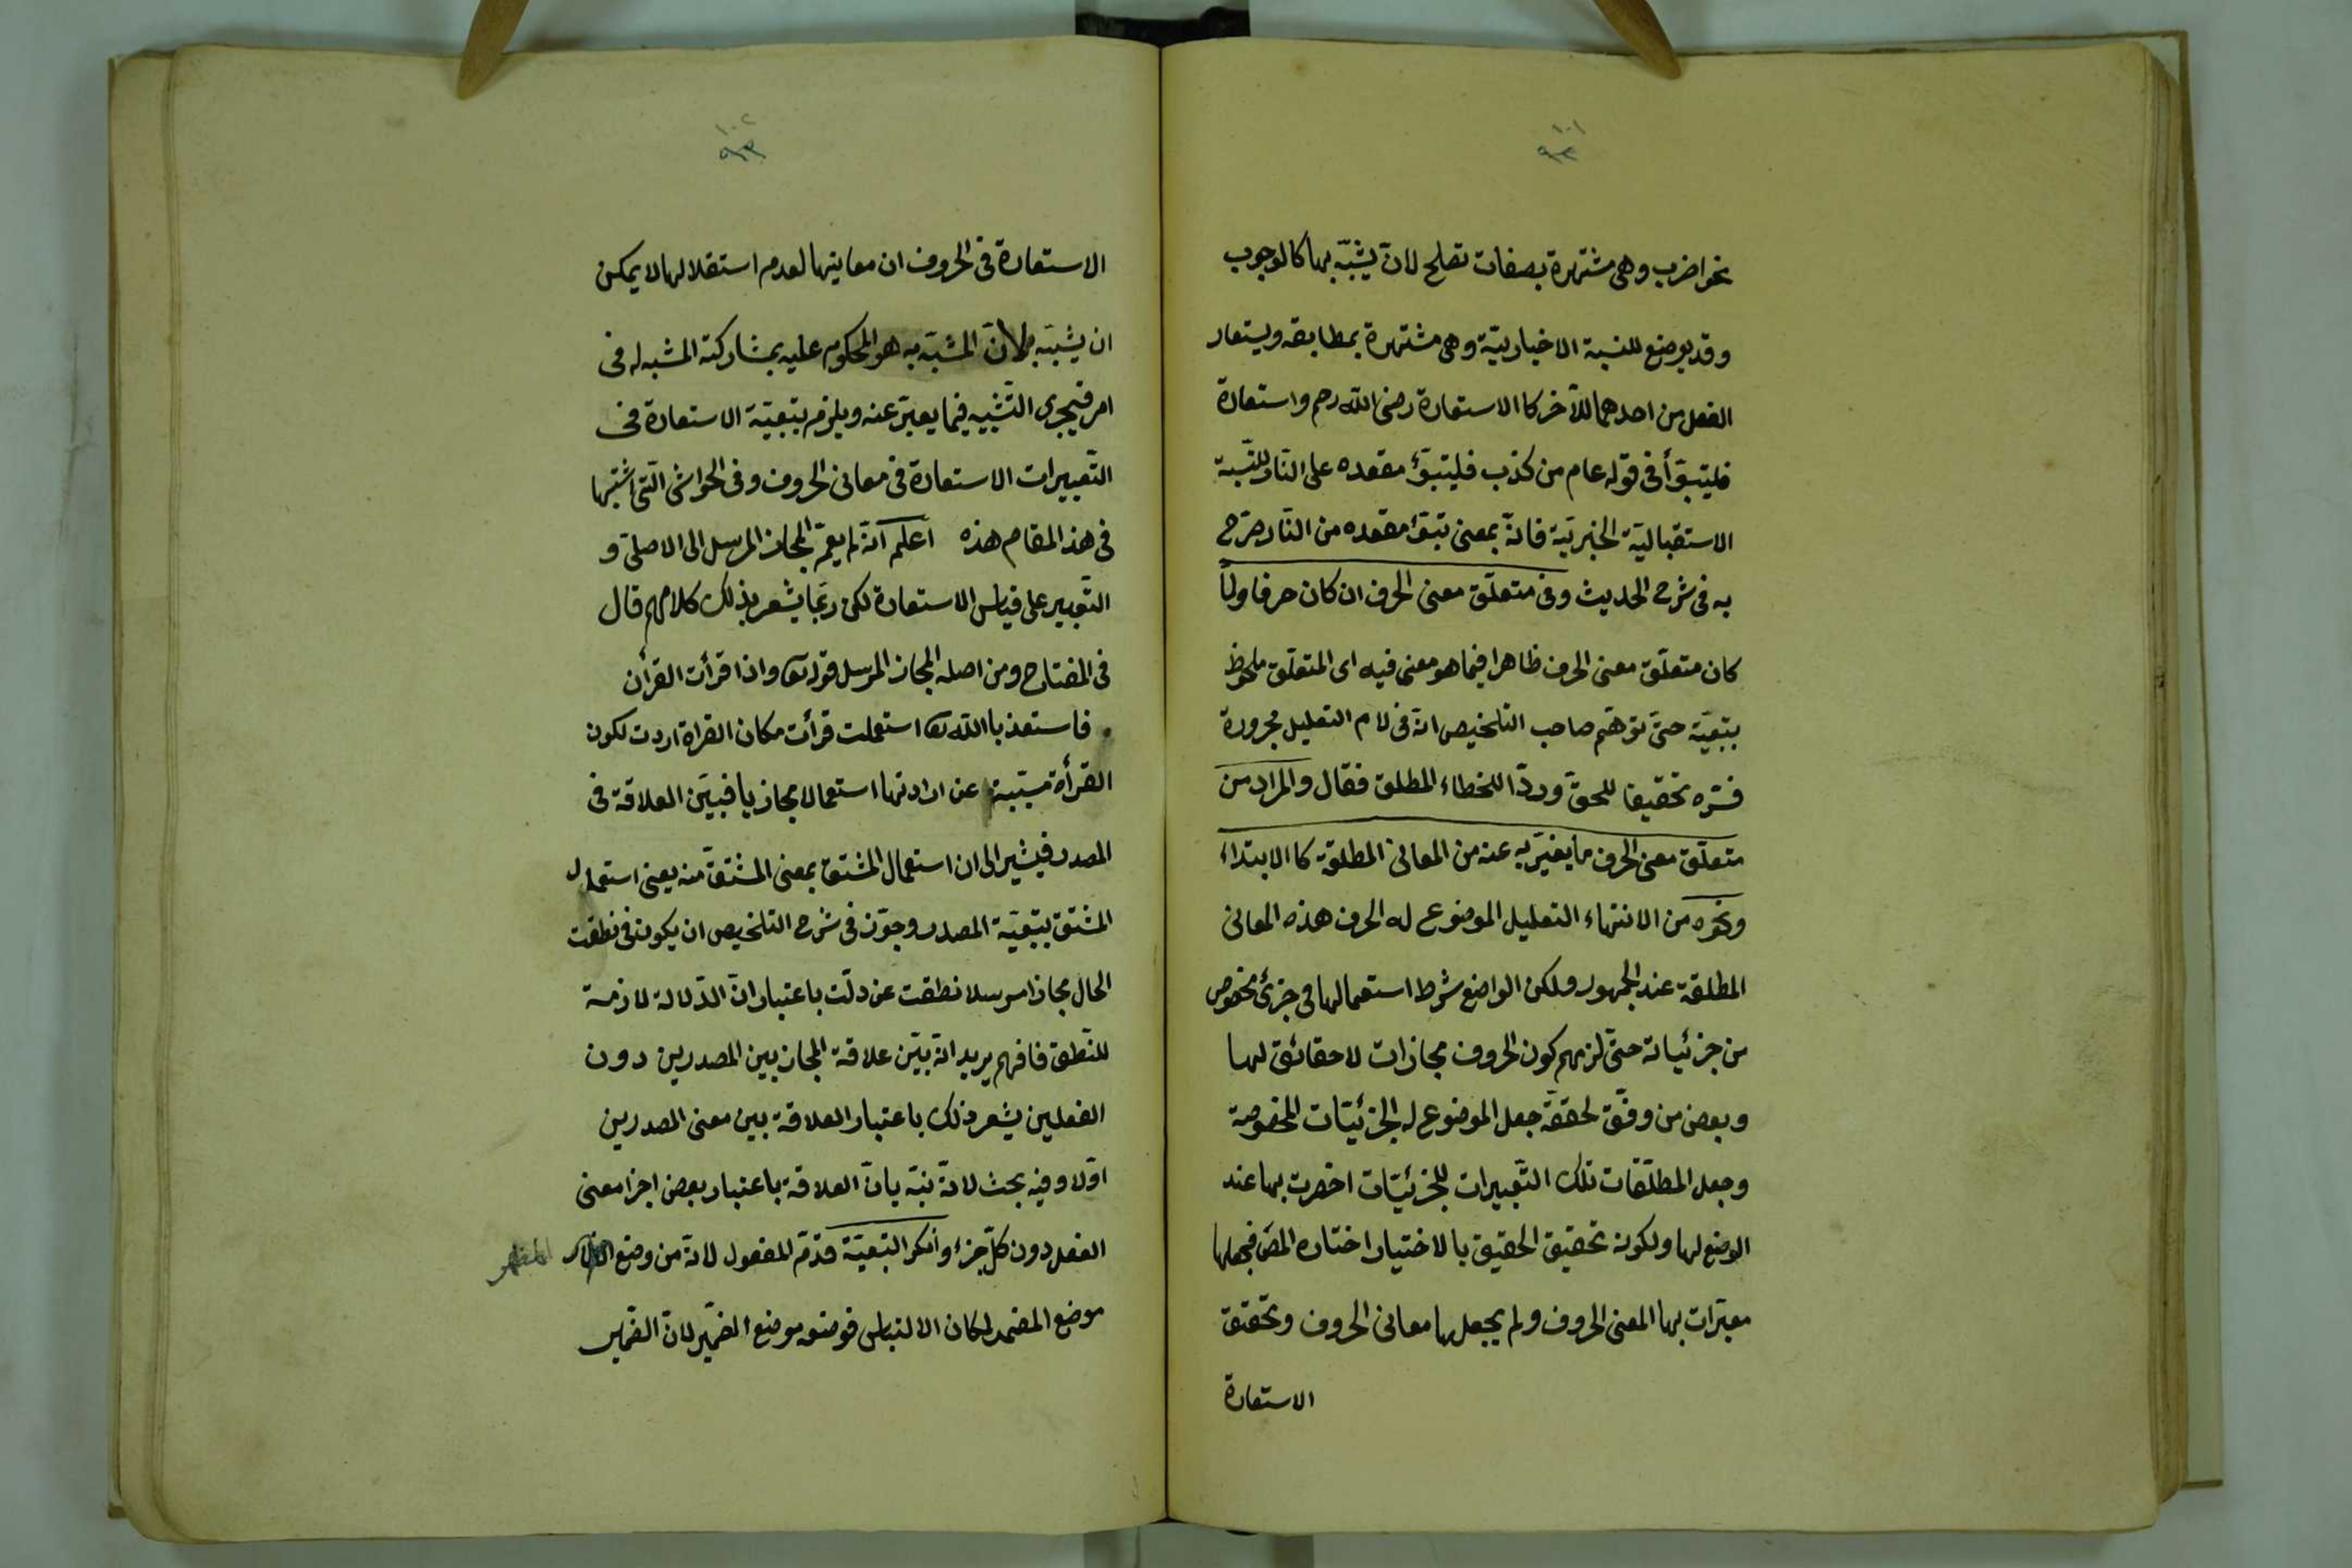 ١٠١
٩٣
نحو اضرب وهى مشتهرة بصفات تصلح لان يشبّه بها كالوجوب
وقد يوضع للنسبة الاخباريّة وهى مشتهرة بمطابقة ويستعار
الفعل من احدهما للآخر كا الاستعارة رضى الله رحم واستعارة
فليتبوّأ فى قوله عام من كذب فليتبوّء مقعده على النّار للنّسبة
الاستقباليّة الخبريّة فانّه بمعنى تبوّء مقعده من النّار صرّح
به فى شرح الحديث وفى متعلّق معنى الحرف ان كان حرفا ولمّا
كان متعلّق معنى الحرف ظاهرا فيما هو معنى فيه اى المتعلّق ملحوظ
بتبعيّة حتى توهّم صاحب التلخيص انّه فى لام التعليل مجرورة
فسّره تحقيقا للحقّ وردّا للخطاء المطلق فقال والمراد من
متعلّق معنى الحرف ما يعبّر به عنه من المعانى المطلقة كا الابتداء
ونحوه من الانتهاء التعليل الموضوع له الحرف هذه المعانى
المطلقة عند الجمهور ولكن الواضع شرط استعمالها فى جزئ مخصوص
من جزئياته حتى لزمهم كون الحروف مجازات لا حقائق لها
وبعض من وفّق لحقّقه جعل الموضوع له الجزئيّات المخصوصة
وجعل المطلقات تلك التّعبيرات للجزئيّات احضرت بها عند
الوضع لها ولكونه تحقيق الحقيق بالاختيار اختاره المصّ فجعلها
معبّرات بها المعنى الحروف ولم يجعل بها معانى الحروف وتحقّق
الاستعارة
١٠٢
٩٣
الاستعارة فى الحروف ان معانيها لعدم استقلالها لا يمكن
ان يشبّه بها لانّ المشبّه به هو المحكوم عليه بمشاركة المشبه له فى
امر فيجرى التّشبيه فيما يعبّر عنه ويلزم بتبعيّة الاستعارة فى
التّعبيرات الاستعارة فى معانى الحروف وفى الحواشى الّتى اثبتها
فى هذا المقام هذه اعلم انّه لم يعمّ المجاز المرسل الى الاصلىّ و
التّعبير على قياس الاستعارة لكن ربّما يشعر بذلك كلامهم قال
فى المفتاح ومن اصله المجاز المرسل قوله تعا واذا قرأت القرأن
فاستعذ باالله تعا استعملت قرأت مكان القراة اردت لكون
القرأة مسبّبة عن ارادتها استعمالا مجازيا فبيّن العلاقة فى
المصدر فيشير الى ان استعمال المشتق بمعنى المشتقّ منه يعنى استعمال
المشتق بتبعيّة المصدر وجوّز فى شرح التلخيص ان يكون فى نطقت
الحال مجازا مرسلا نطقت عن دلّت باعتبار انّ الدّلالة لازمة
للنّطق فافهم يريد انّه بيّن علاقة المجاز بين المصدرين دون
الفعلين يشعر ذلك باعتبار العلاقة بين معنى المصدرين
اوّلا وفيه بحث لانّه نبّه بانّ العلاقة باعتبار بعض اجزا معنى
الفعل دون كلّ جزء وانكر التبعيّة قدّم المفعول لانّه من وضع المظهر
موضع المضمر لكان الالتباس فوضعه موضع الضمير لانّ الضمير